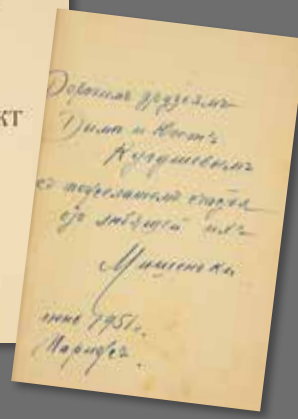 кт
Дорогимъ друзьямъ
Димѣ и Костѣ
Кугушевымъ
съ пожеланіемъ счастья
любящей ихъ
1951 г.
Парижъ.